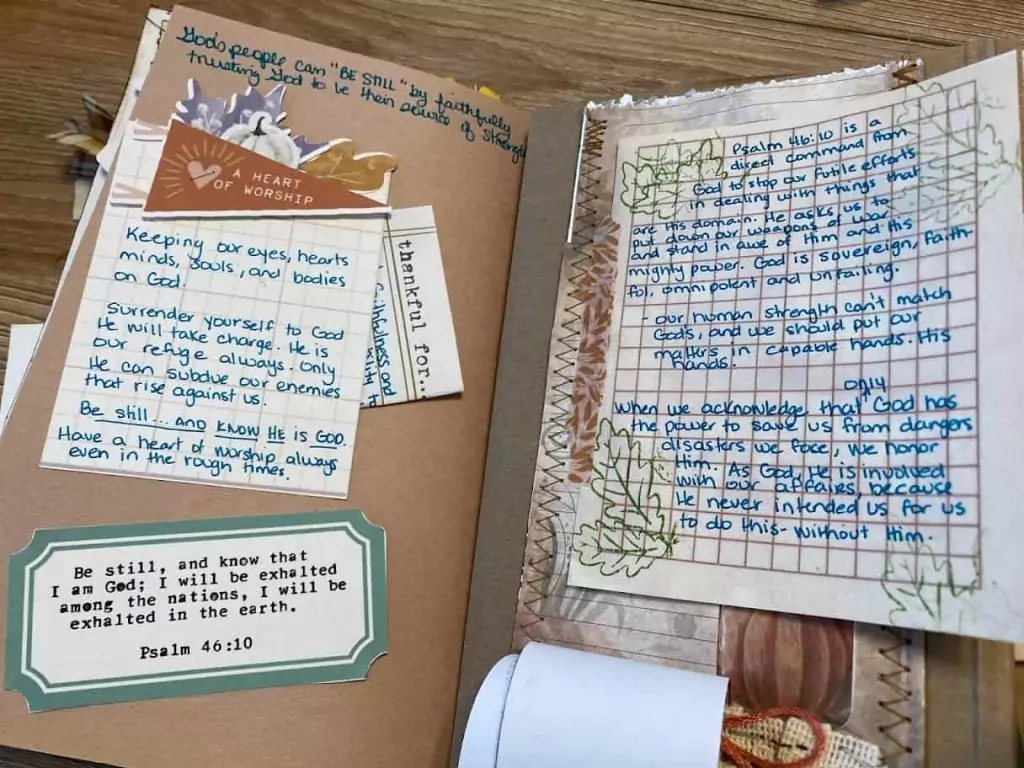 God's people can "BE STILL" by faithfully
trusting God to be their source of strength
A HEART
OF WORSHIP
Keeping our eyes, hearts
minds, souls, and bodies
on God.
Surrender yourself to God
He will take charge. He is
our refuge always. Only
He can subdue our enemies
that rise against us.
Be still... AND KNOW HE is GOD.
Have a heart of worship always
even in the rough times.
thankful for...
faithfulness and
Be still, and know that
I am God; I will be exhalted
among the nations, I will be
exhalted in the earth.
Psalm 46:10
Psalm 46:10 is a
direct command from
God to stop our futile efforts
in dealing with things that
are His domain. He asks us to
put down our weapons of war
and stand in awe of Him and His
mighty power. God is sovereign, faith-
ful, omnipotent and unfailing.
- our human strength can't match
God's, and we should put our
matters in capable hands. His
hands.
only
When we acknowledge that ^ God has
the power to save us from dangers
disasters we face, we honor
Him. As God, He is involved
with our affaies, because
He never intended us for us
to do this - without Him.